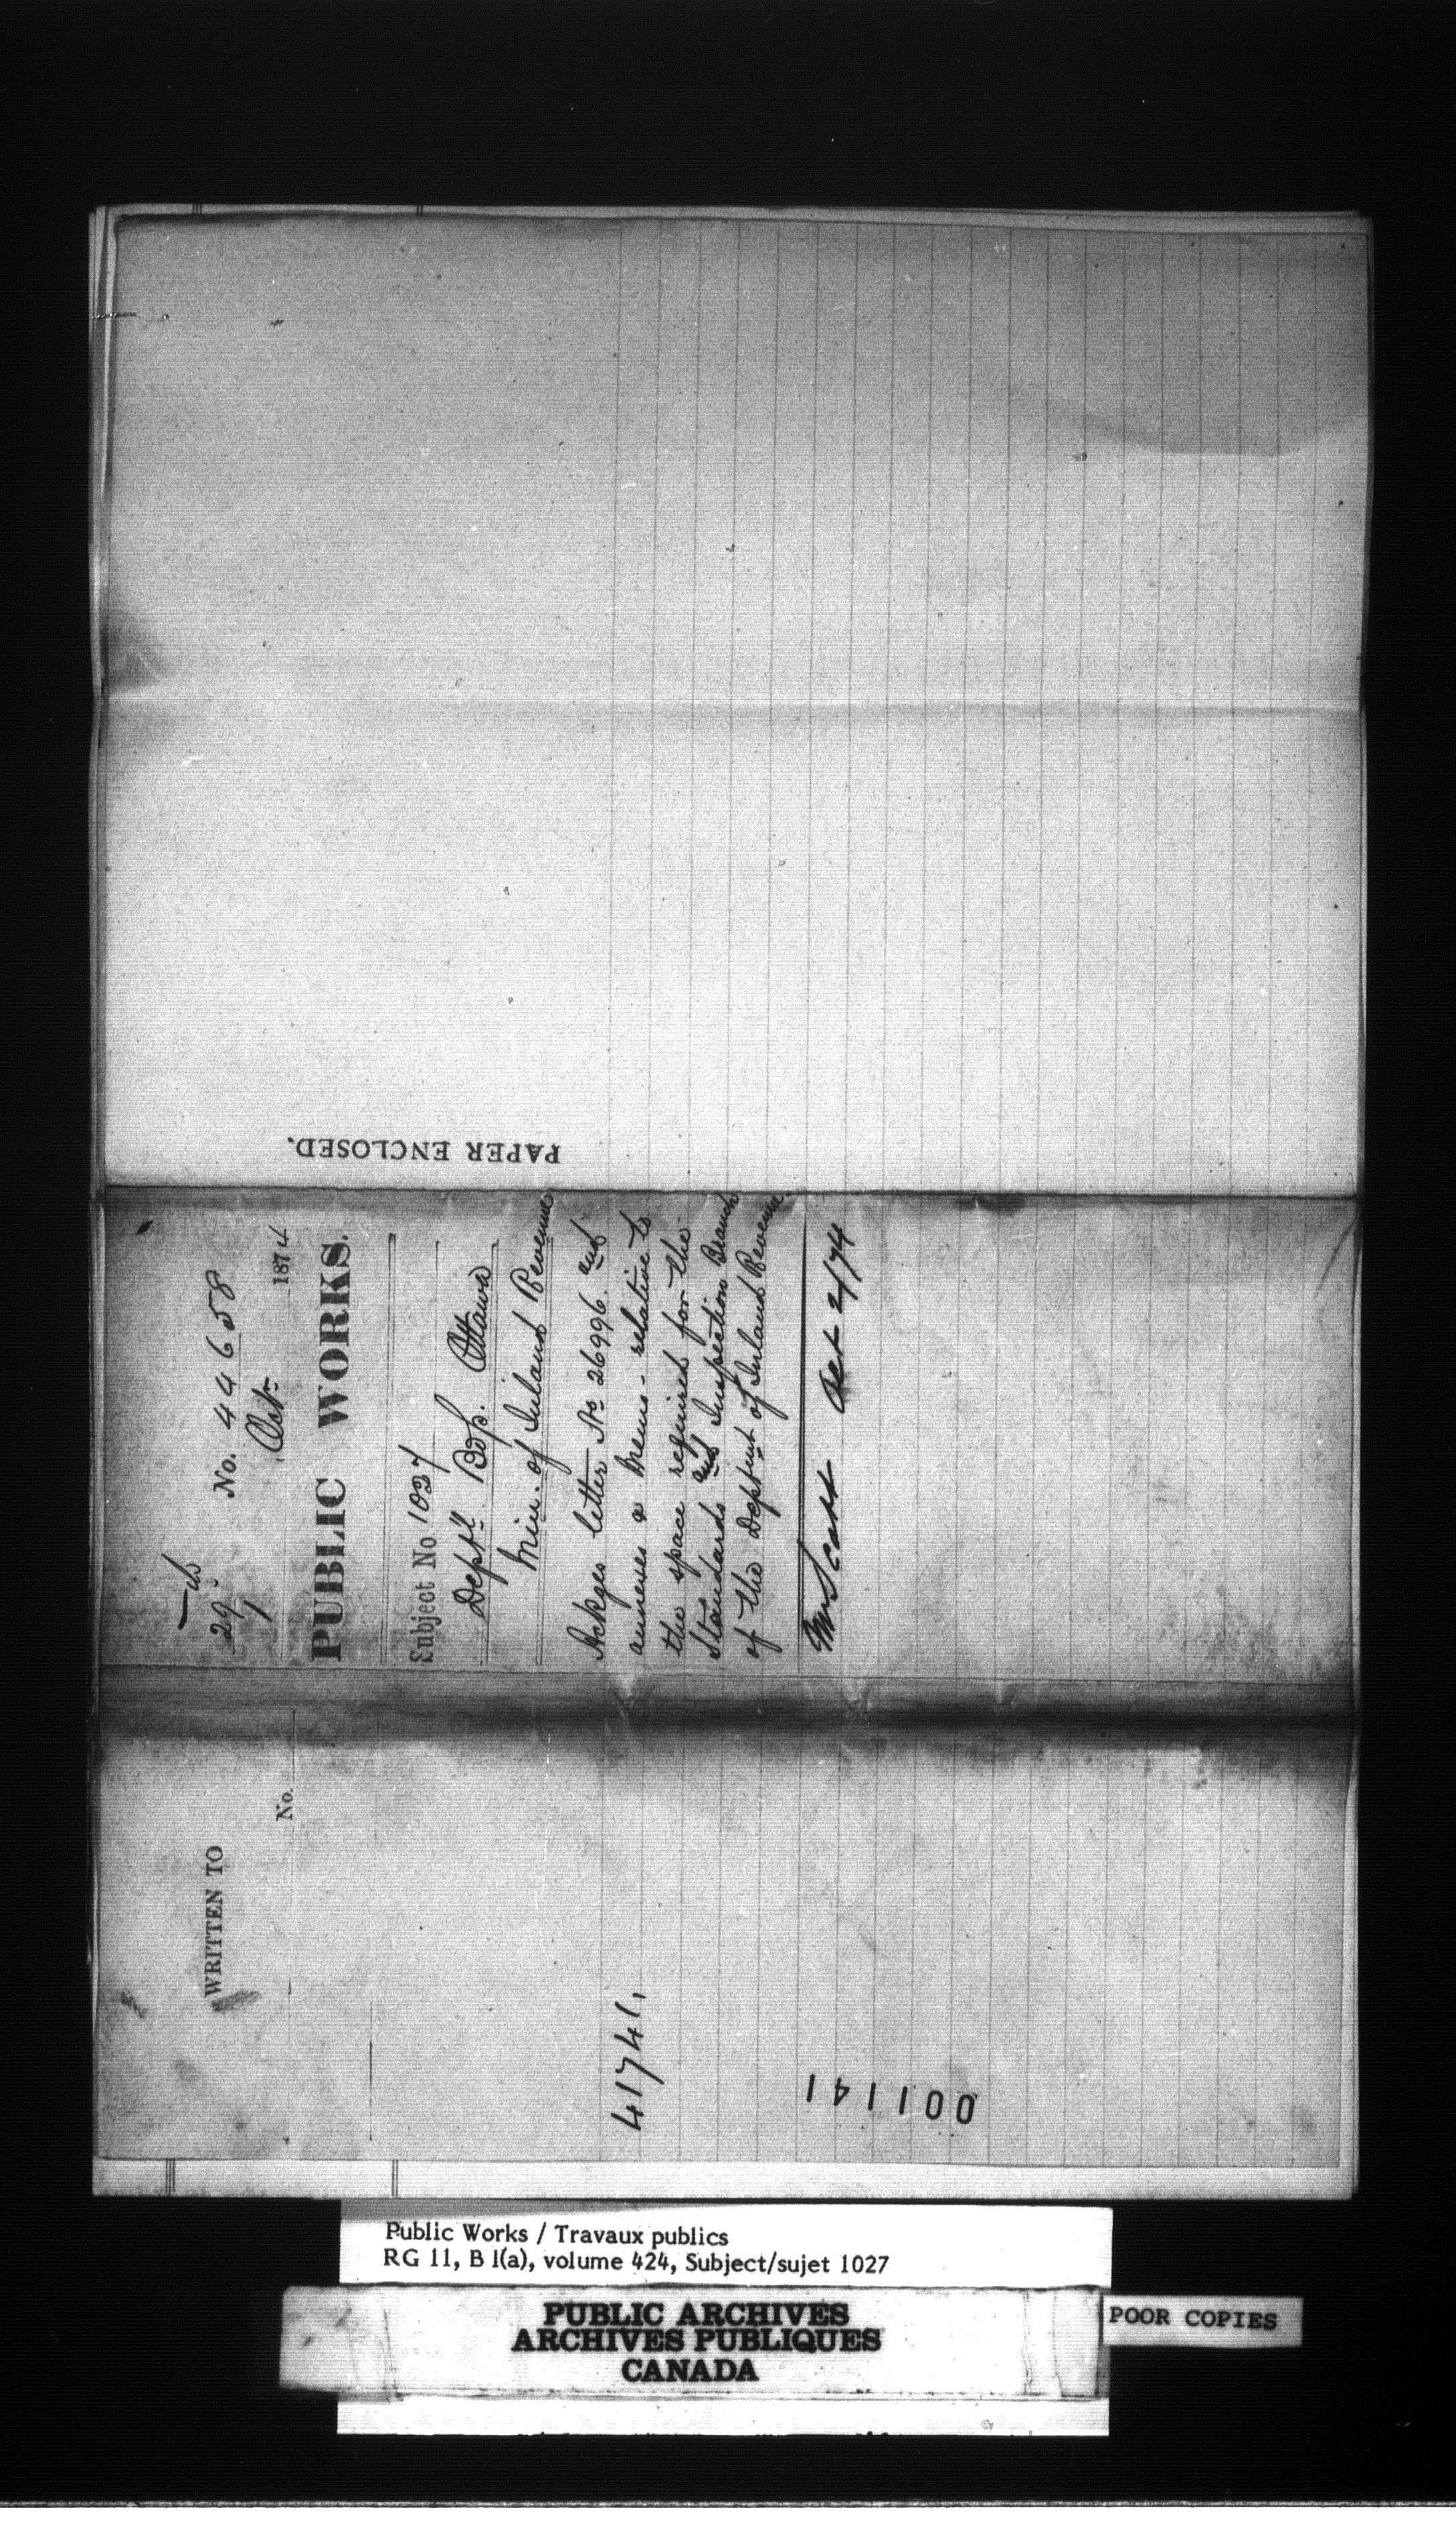 PAPER ENCLOSED.
29
1
No. 44658
Octr 1874
PUBLIC WORKS.
Subject No 1027
Dept'l Bdgs. Ottawa
Min. of Inland Revenue
Ackges letter No 26996 and
annexes a Memo - relative to
the space required for the
Standards and Inspection Branch
of the Deptmt of Inland Revenue
Mr Scott Oct 2/74
WRITTEN TO
No.
41741,
001141
Public Works / Travaux publics
RG 11, B 1(a), volume 424, Subject/sujet 1027
PUBLIC ARCHIVES
ARCHIVES PUBLIQUES
CANADA
POOR COPIES